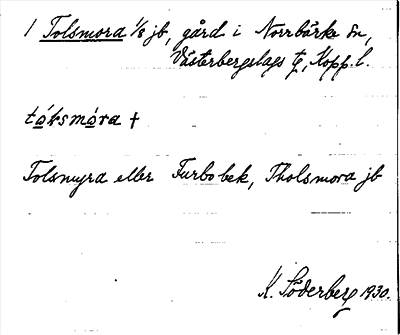 1 Tolsmora 1/8 jb, gård i Norrbärke sn,
Västerbergslags tg, Kopp. l.
tóksmóra †
Tolsmyra eller Furbobek, Tholsmora jb
K. Söderberg 1930.